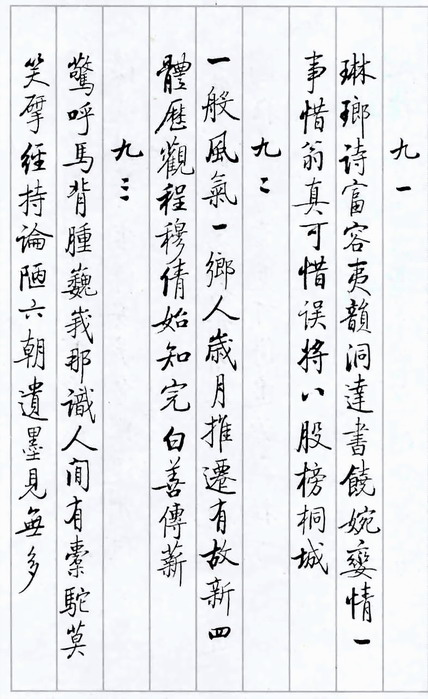 九一
琳瑯诗富容夷韻洞達書饒婉孌情一
事惜翁真可惜误將八股榜桐城
九二
一般風氣一鄉人歲月推遷有故新四
體歷觀程穆倩始知完白善傳薪
九三
驚呼馬背腫巍峩那識人间有橐駝莫
笑擘經持論陋六朝遺墨見無多